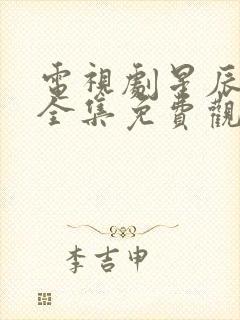 電視劇星辰
全集免費觀
李吉申